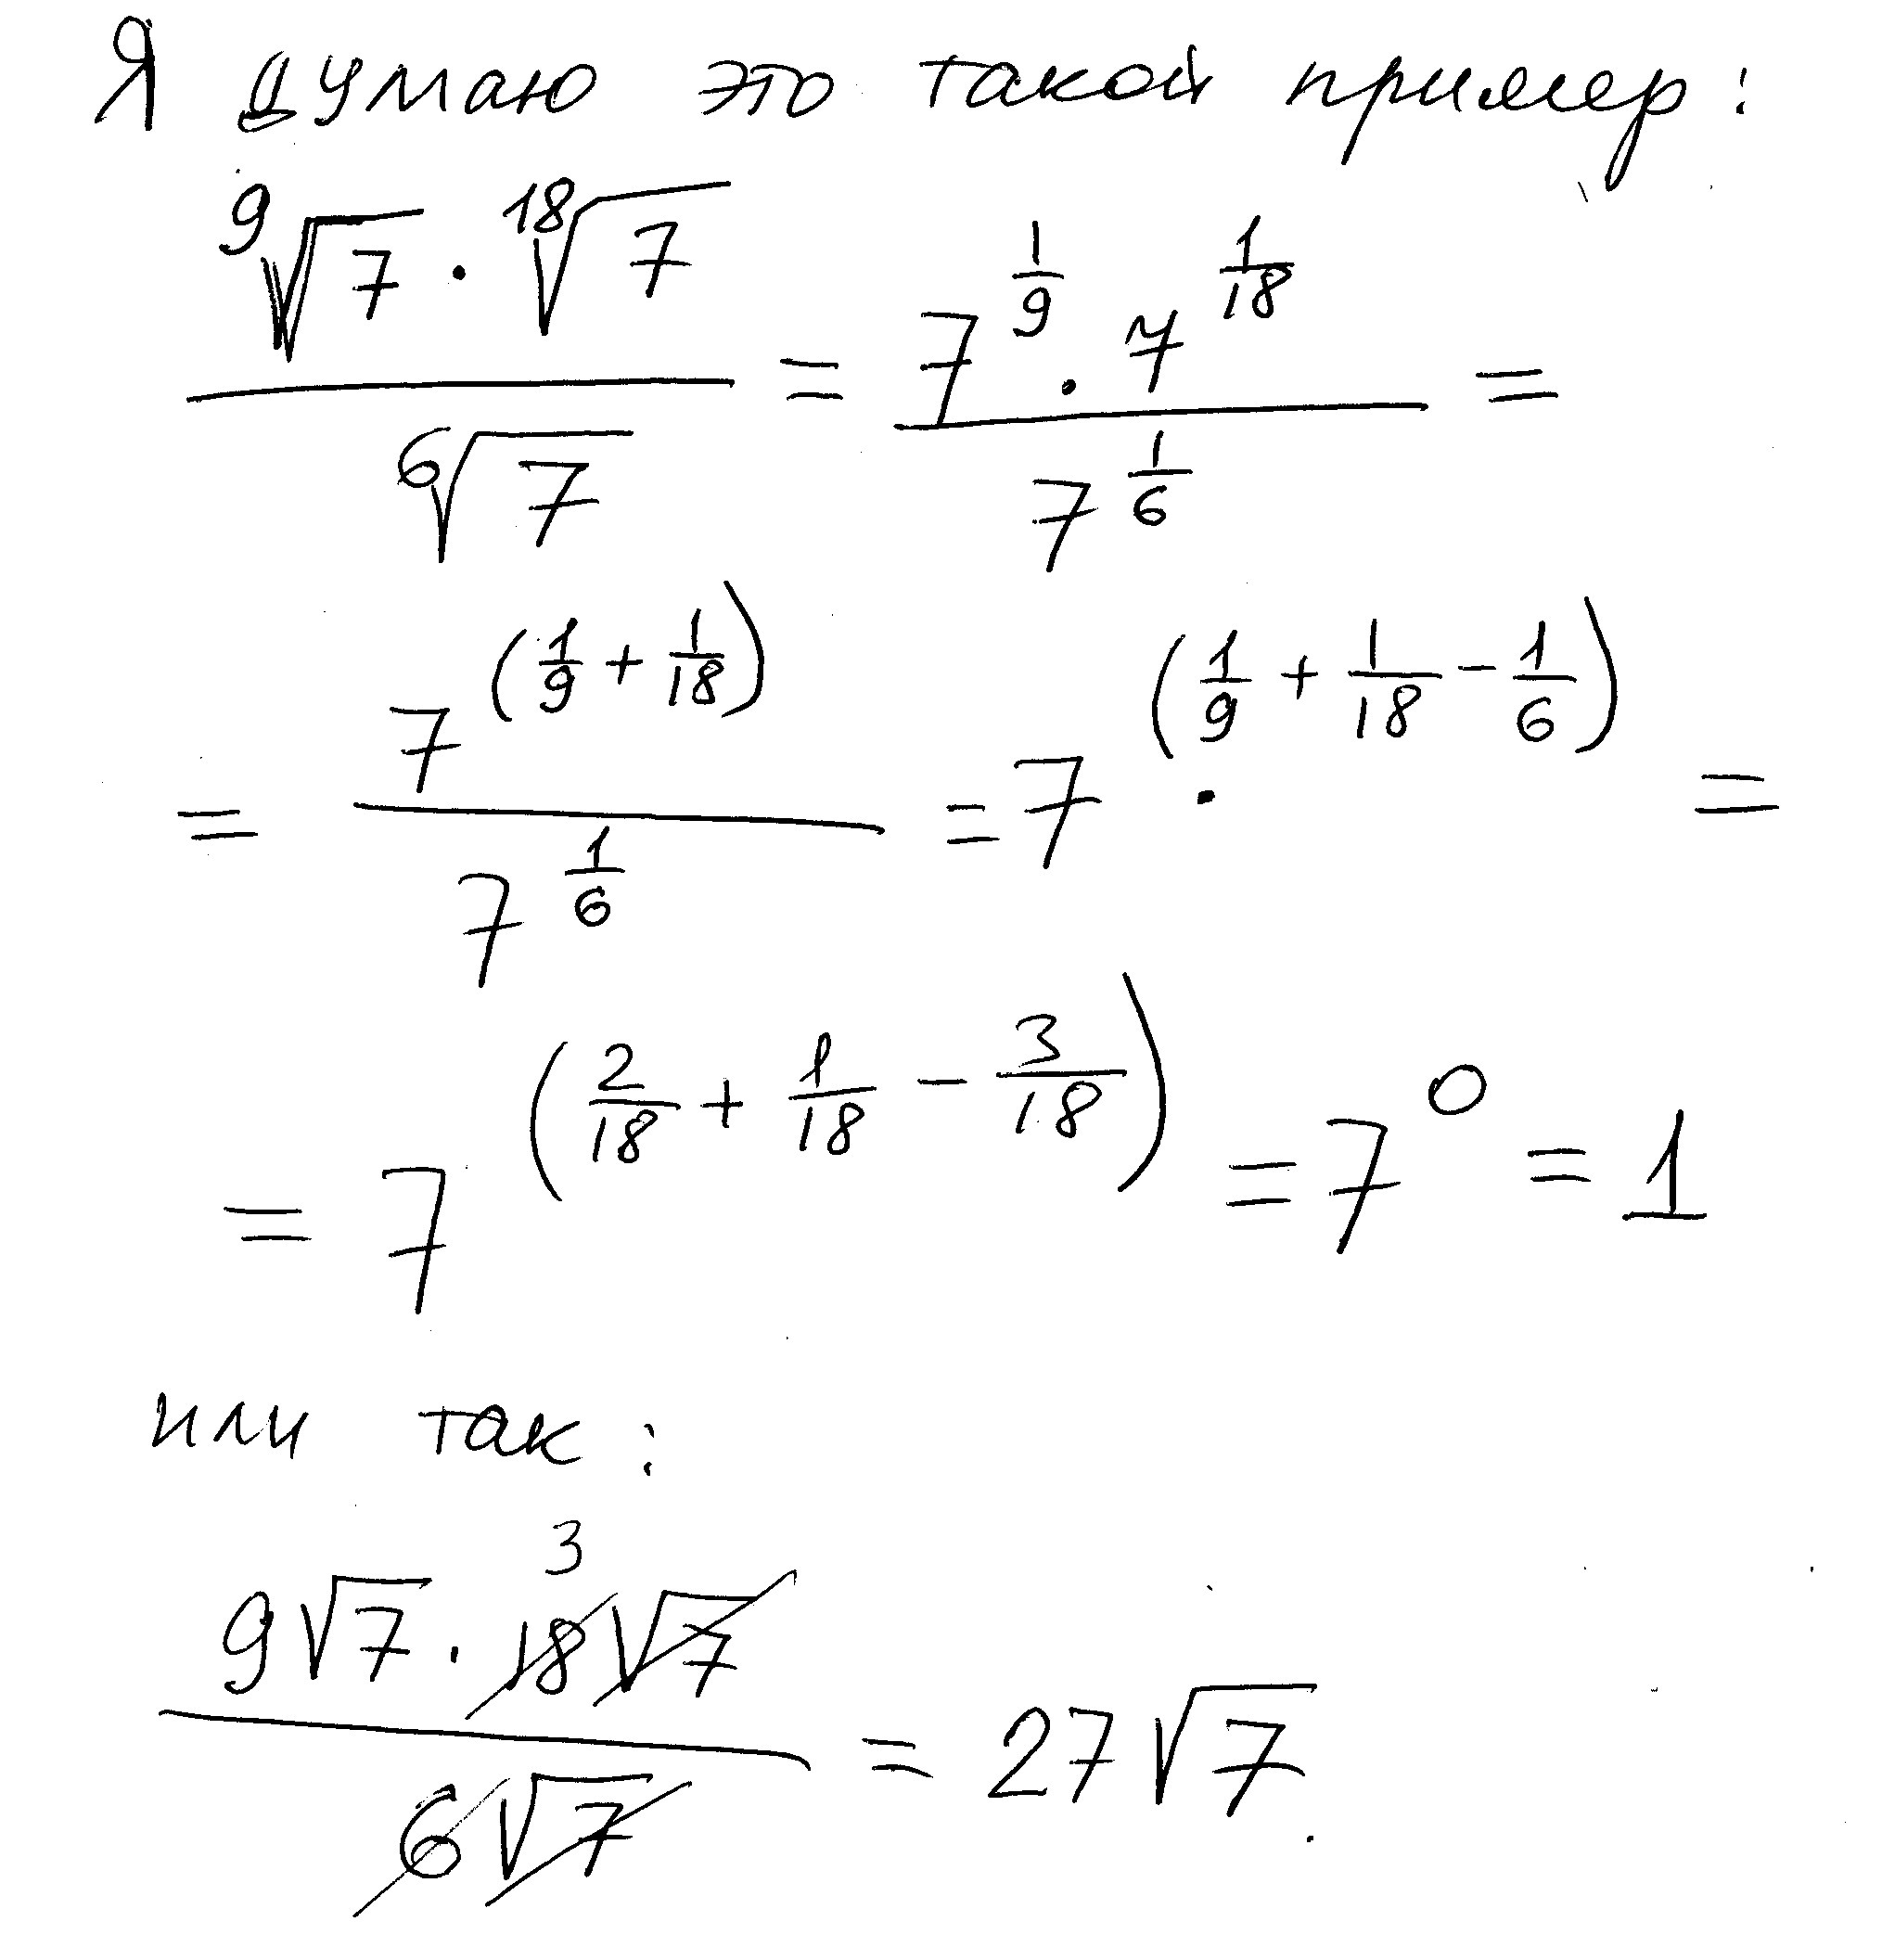 Я думаю это такой пример:
\frac{\sqrt[9]{7} \cdot \sqrt[18]{7}}{\sqrt[6]{7}} = \frac{7^{\frac{1}{9}} \cdot 7^{\frac{1}{18}}}{7^{\frac{1}{6}}} =
= \frac{7^{(\frac{1}{9} + \frac{1}{18})}}{7^{\frac{1}{6}}} = 7^{(\frac{1}{9} + \frac{1}{18} - \frac{1}{6})} =
= 7^{(\frac{2}{18} + \frac{1}{18} - \frac{3}{18})} = 7^{0} = 1
или так:
\frac{9\sqrt{7} \cdot \cancel{18}^{3}\cancel{\sqrt{7}}}{\cancel{6}\cancel{\sqrt{7}}} = 27\sqrt{7}.